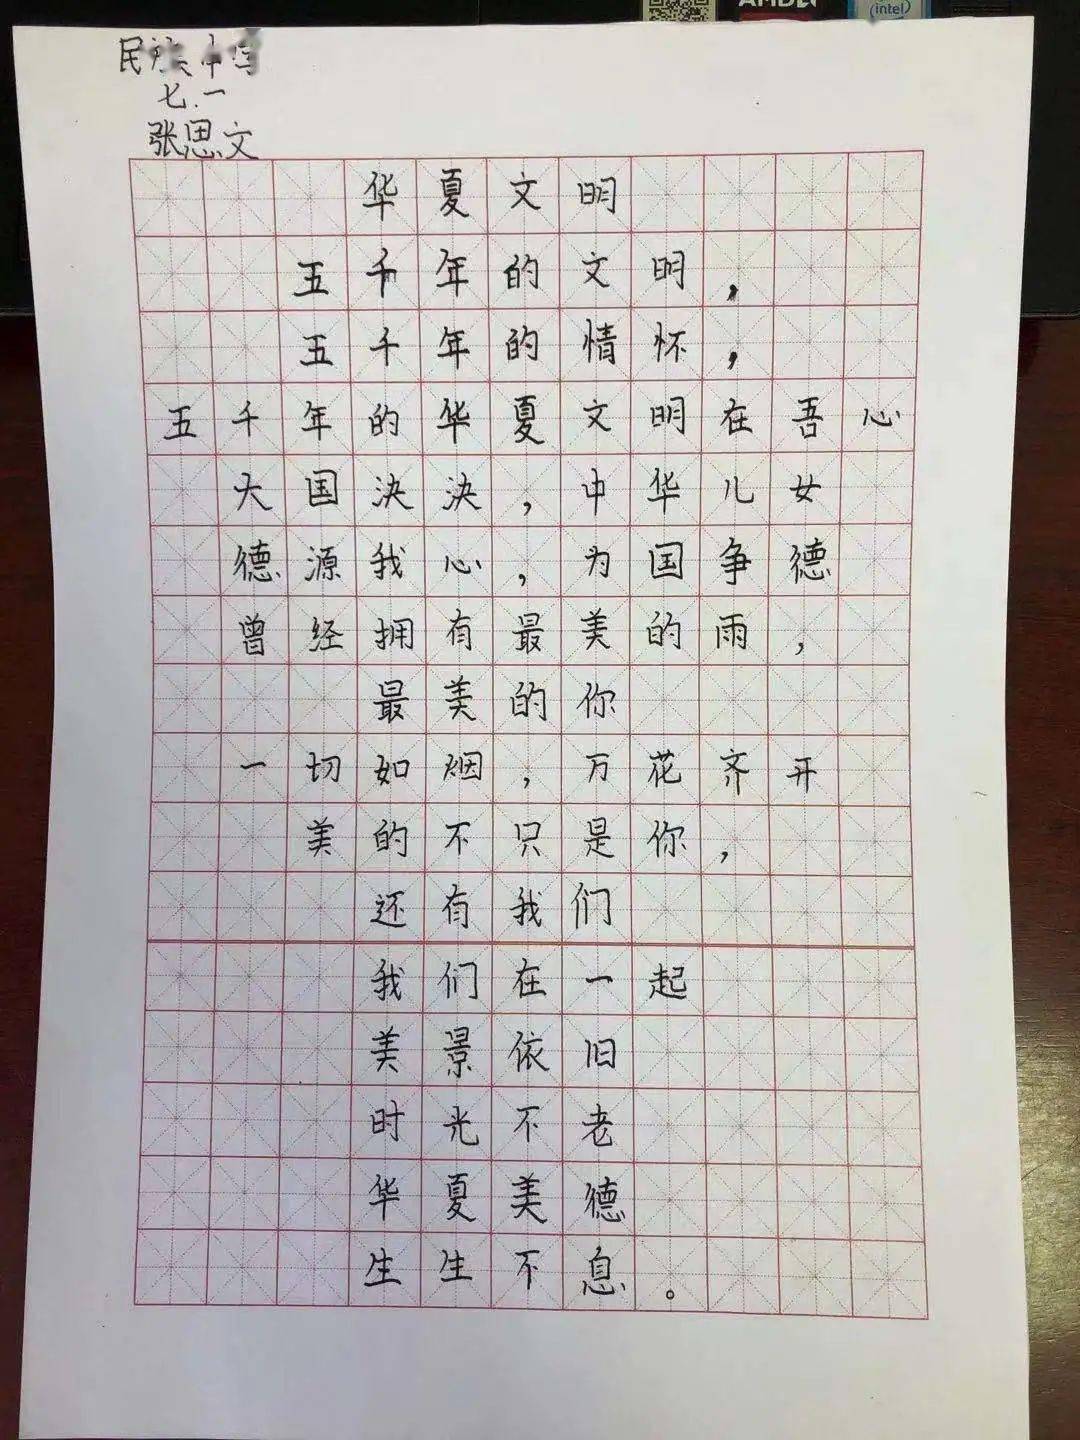 intel
民族中学
七.一
张思文
华夏文明
五千年的文明，
五千年的情怀，
五千年的华夏文明在吾心
大国決決，中华儿女
德源我心，为国争德
曾经拥有最美的雨，
最美的你
一切如烟，万花齐开
美的不只是你，
还有我们
我们在一起
美景依旧
时光不老
华夏美德
生生不息。